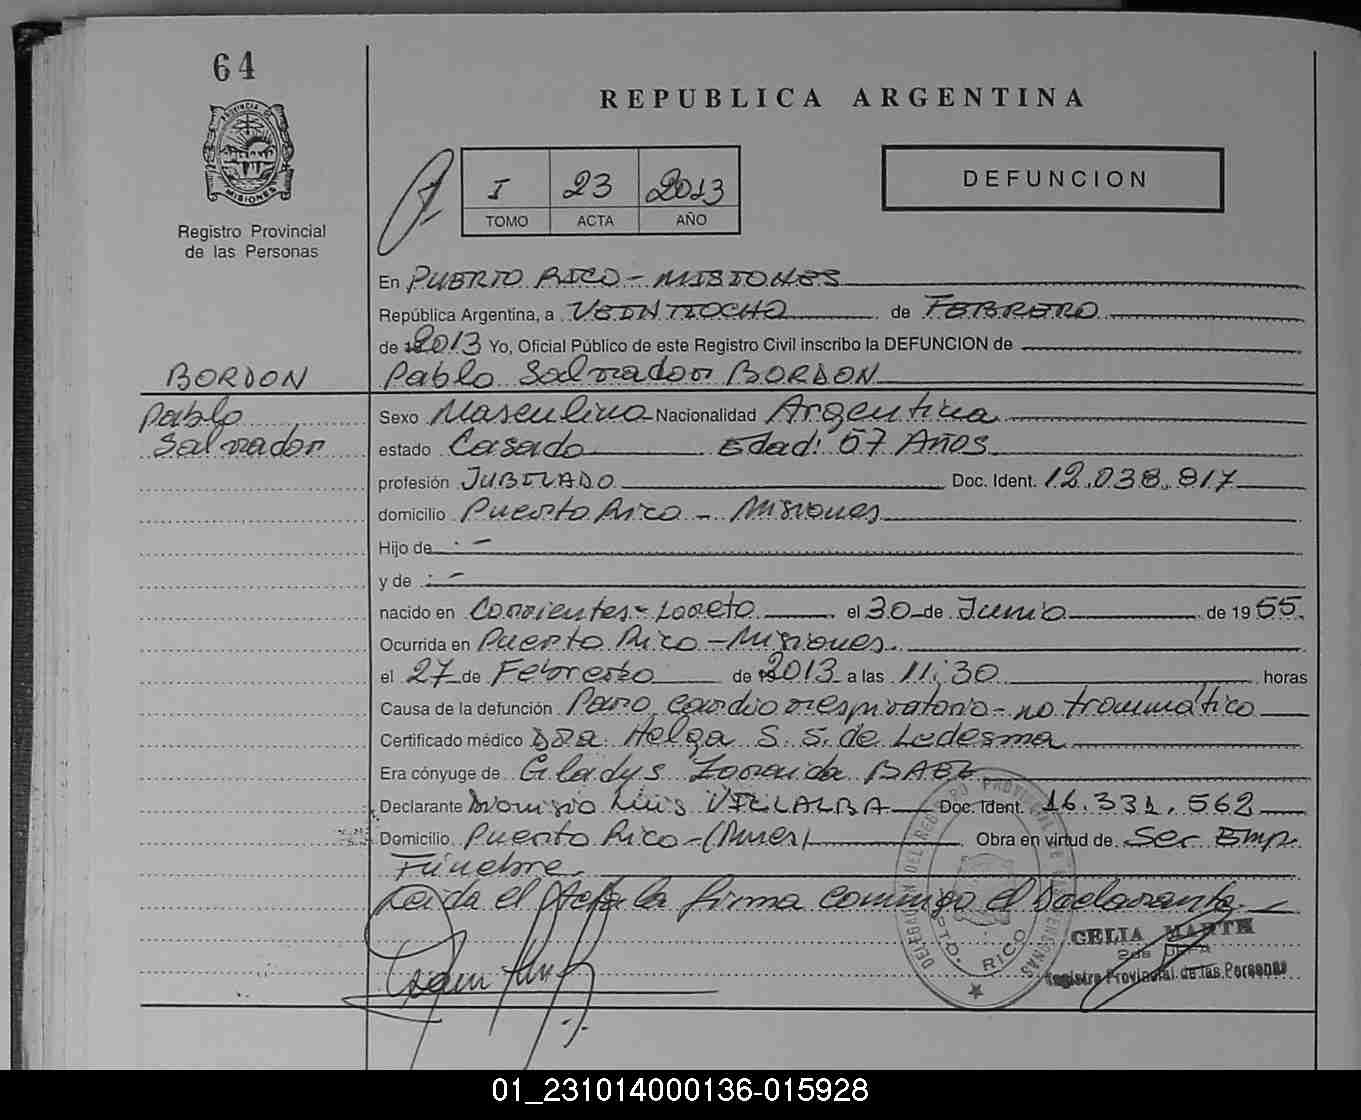 64
REPUBLICA ARGENTINA
PROVINCIA DE
MISIONES
Registro Provincial
de las Personas
I 23 2013
TOMO ACTA AÑO
DEFUNCION
En PUERTO RICO - MISIONES
República Argentina, a VEINTIOCHO de FEBRERO
de 2013 Yo, Oficial Público de este Registro Civil inscribo la DEFUNCION de
BORDON
Pablo Salvador BORDON
Pablo
Salvador
Sexo Masculino Nacionalidad Argentina
estado Casado Edad: 57 Años
profesión JUBILADO Doc. Ident. 12.038.917
domicilio Puerto Rico - Misiones
Hijo de . -
y de : -
nacido en Corrientes - Loreto el 30 de Junio de 1955.
Ocurrida en Puerto Rico - Misiones.
el 27 de Febrero de 2013 a las 11:30 horas
Causa de la defunción Paro cardiorrespiratorio - no traumático
Certificado médico Dra. Helga S. S. de Ledesma
Era cónyuge de Gladys Zoraida BAEZ
Declarante Dionisio Luis VILLALBA Doc. Ident. 16.331.562
Domicilio Puerto Rico - (Mnes) Obra en virtud de Ser Emp.
Fúnebre.
Leida el Acta la firma conmigo el Declarante
DELEGACION DEL REGISTRO PROVINCIAL DE LAS PERSONAS
PTO. RICO
CELIA MARTH
Registro Provincial de las Personas
01_231014000136-015928